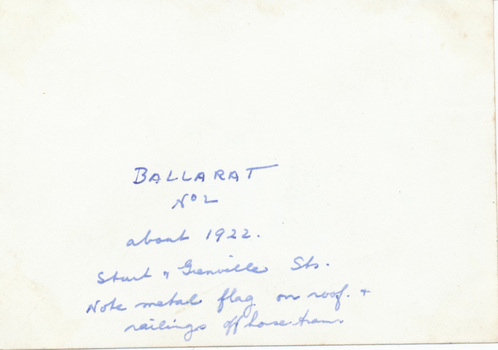 BALLARAT
No 2
about 1922.
Sturt & Grenville Sts.
Note metal flag on roof. +
railings off horse tram